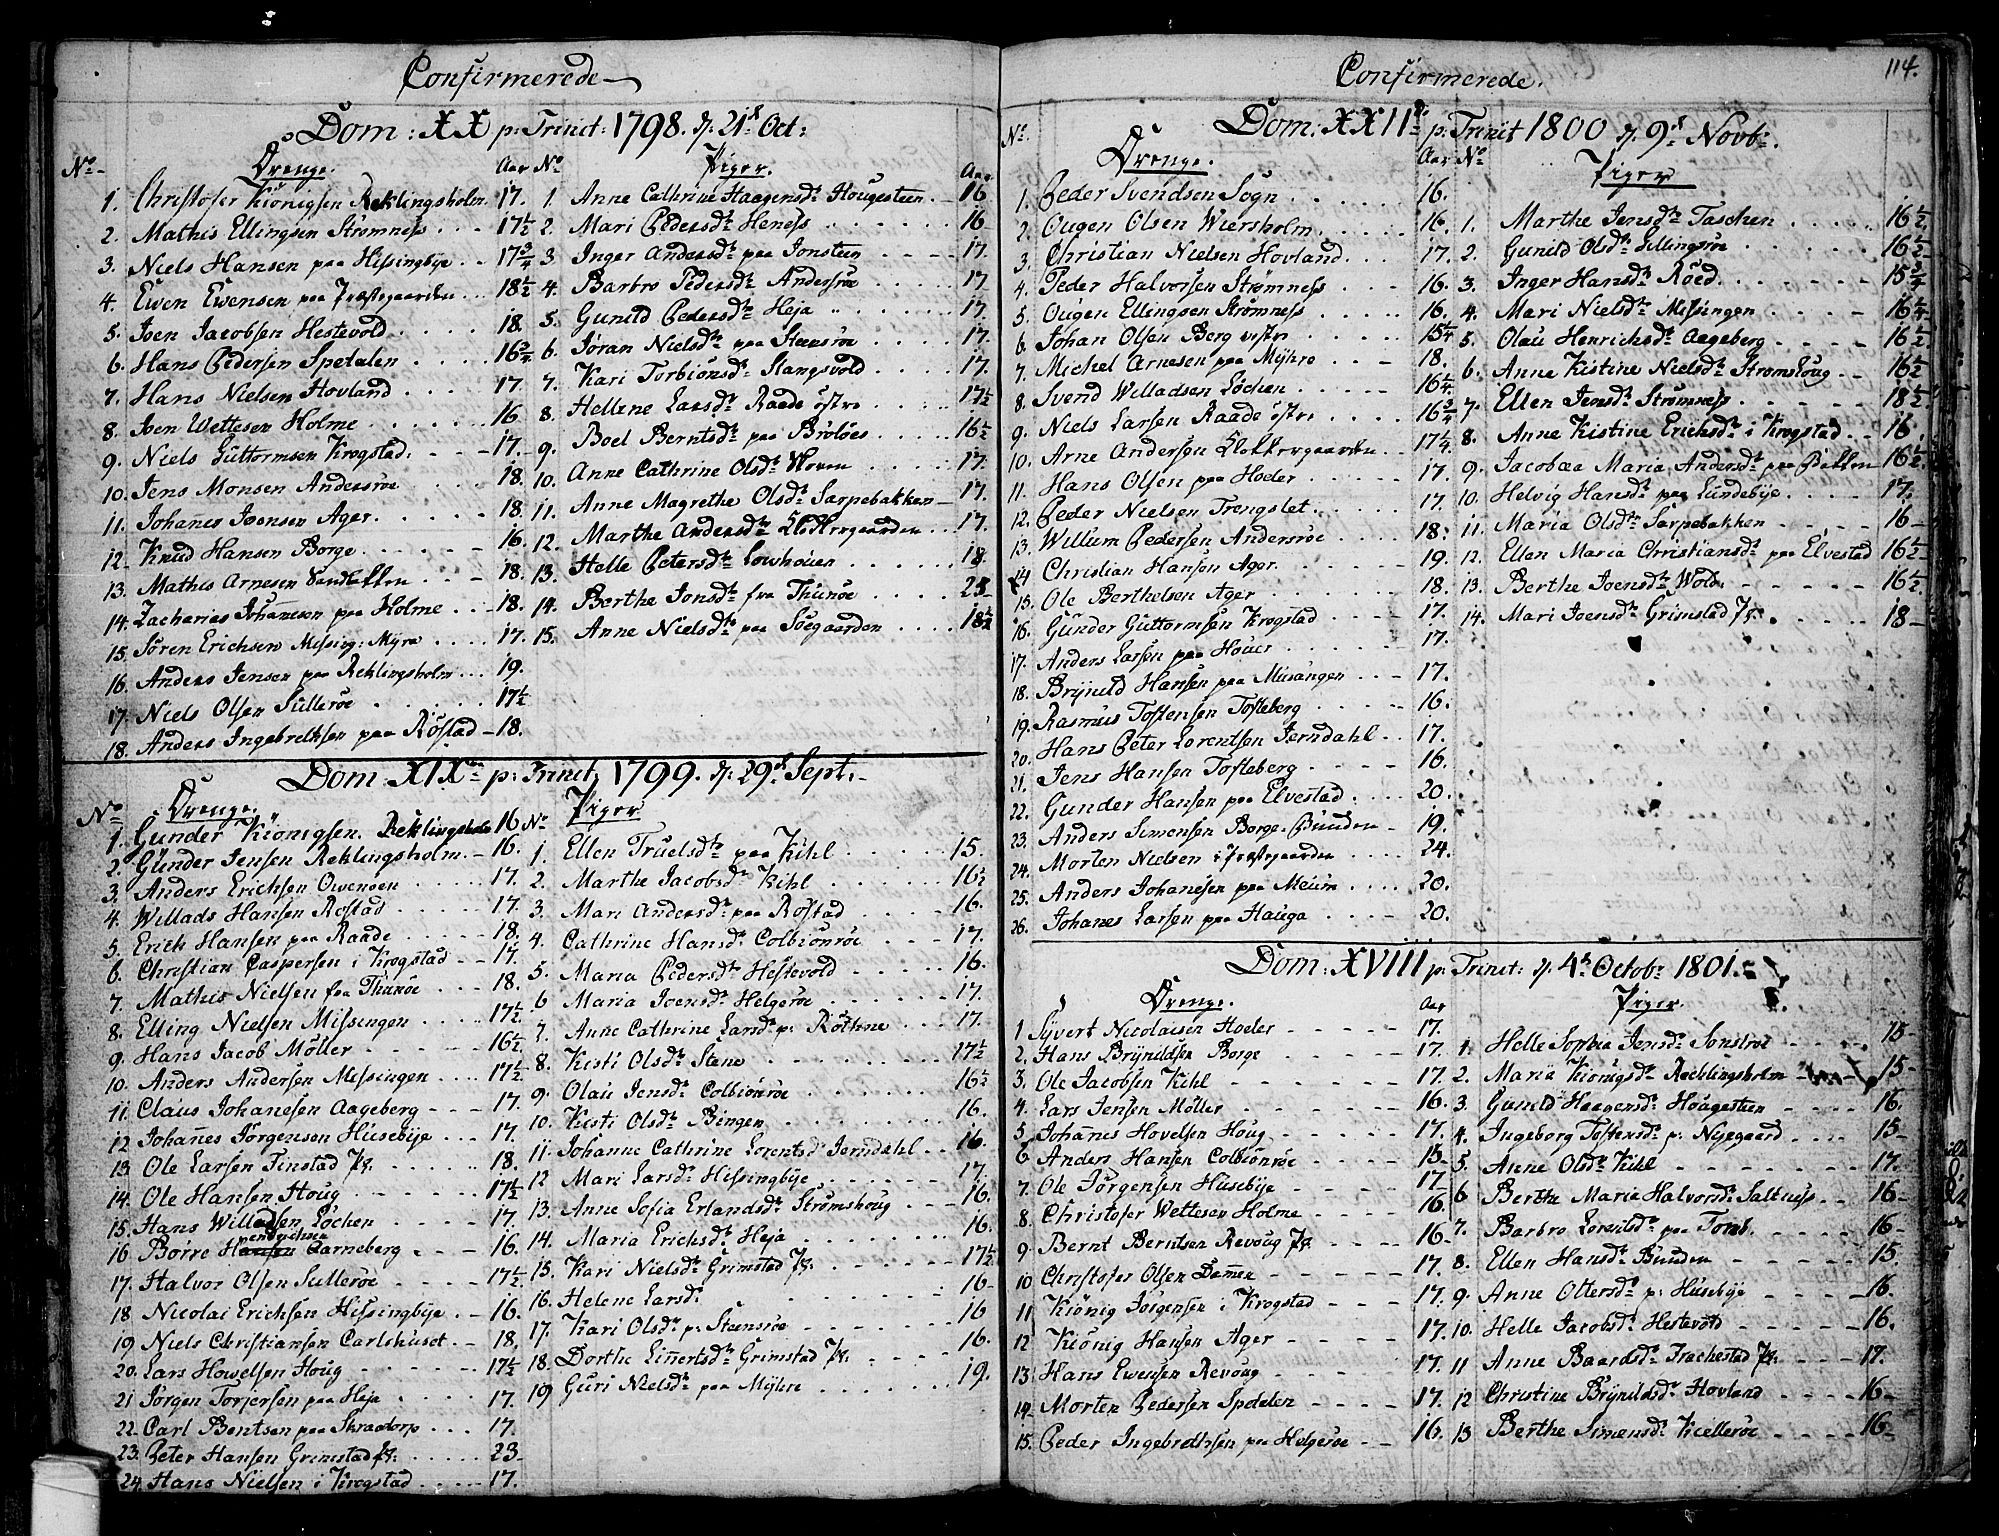 Confirmerede
Dom: XX p: Trinit: 1798. d: 21de Oct:
No Drenge. Aar
1. Christofer Kiönigsen Reklingsholm. 17.
2. Mathis Ellingsen Strömness 17½
3. Niels Hansen paa Hissingbÿe 17¾
4. Ewen Ewensen paa Præstegaarden 18½
5. Joen Jacobsen Hestevold 18.
6. Hans Pedersen Spetalen 16¾
7. Hans Nielsen Hovland 17.
8. Joen Wettesen Holme 16
9. Niels Guttormsen Krogstad. 17.
10. Jens Monsen Andersröe 18.
11. Johanes Joensen Ager. 18.
12. Knud Hansen Borge 16.
13. Mathis Arnesen Sandbakken 18.
14. Zacharias Johannesen paa Holme 18.
15. Sören Erichsen Missing: Mÿra 17.
16. Anders Jensen paa Reklingsholm 19.
17. Niels Olsen Sulleröe 17½
18. Anders Ingebrethsen paa Röstad 18.
No Piger. Aar
1. Anne Cathrine Haagensdr. Hougesteen 16
2. Mari Pedersdr. Heness 16
3. Inger Andersdr. paa Jonsteen 17.
4. Barbro Pedersdr. Andersröe 17
5. Gunild Pedersdr. Heja 17.
6. Jöran Nielsdr. paa Steensröe 17.
7. Kari Torbiönsdr. Slangsvold 17.
8. Hellene Larsdr. Raade östre 17½
9. Boel Berntsdr. paa Brölöes 16½
10. Anne Cathrine Olsdr. Hoven 17.
11. Anne Magrethe Olsdr. Sarpebakken 17.
12. Marthe Andersdr. Klokkergaarden 17.
13. Helle Petersdr. Lowhouen 18.
14. Berthe Jonsdr. fra Thunöe 25
15. Anne Nielsdr. paa Söegaarden 18½
Dom XIX p: Trinit, 1799. d: 29de Sept:
No Drenge.
1. Gunder Kiönigsen. Reklingsholm 16
2. Gunder Jensen Reklingsholm. 16.
3. Anders Erichsen Owenöen 17.
4. Willads Hansen Rostad 17.
5. Erich Hansen paa Raade 18.
6. Christian Caspersen i Krogstad 17.
7. Mathis Nielsen fra Thunöe 18.
8. Elling Nielsen Missingen 17½
9. Hans Jacob Möller 16½
10. Anders Andersen Missingen 17½
11. Claus Johanesen Aageberg 17.
12. Johannes Jörgensen Husebÿe 17.
13. Ole Larsen Finstad Pr. 18.
14. Ole Hansen Houg 17½
15. Hans Willadsen Löchen 17.
endrichsen
16. Börre Hansen Aarneberg 16.
17. Halvor Olsen Sulleröe 17½
18. Nicolai Erichsen Hissingbÿe 16.
19. Niels Christiansen Carlshuset 18.
20. Lars Howelsen Houg 17½
21. Jörgen Torjersen paa Heja 17.
22. Carl Bentsen paa Skraadorp 17.
23. Peter Hansen Grimstad Pr. 23
24. Hans Nielsen i Krogstad 17.
No Piger
1. Ellen Truelsdr. paa Kihl 15.
2. Marthe Jacobsdr. Kihl 16½
3. Mari Andersdr. paa Rostad 16.
4. Cathrine Hansdr. Colbiönröe 17.
5. Maria Pedersdr. Hestevold 16.
6 Maria Joensdr. Helgeröe 17.
7. Anne Cathrine Larsdr. p: Röthne 17.
8. Kisti Olsdr. Stene 17½
9. Olau Jensdr. Colbiönröe 16½
10. Kisti Olsdr. Bingen 16.
11. Johanne Cathrine Lorentsdr. Jerndahl 16.
12 Mari Larsdr. Hissingbÿe 17.
13. Anne Sofia Erlandsdr. Strömshoug 16.
14. Maria Erichsdr. Heja 16.
15. Kari Nielsdr. Grimstad Pr. 17½
16. Helene Larsdr. 16
17. Kari Olsdr. p: Steensröe 16
18. Dorthe Linertsdr. Grimstad Pr. 16.
19 Guri Nielsdr. paa Mÿkre 19.
Confirmerede. 114.
Dom: XXII p: Trinit 1800 d. 9de Novbr.
No Drenge. Aar
1. Peder Svendsen Sogn 16.
2. Ougen Olsen Wiersholm 16.
3. Christian Nielsen Hovland 17.
4. Peder Halvorsen Strömness 16.
5. Ougen Ellingsen Strömness 16.
6. Johan Olsen Berg vestre 15¼
7. Michel Arnesen paa Mÿkre 18.
8. Svend Willadsen Löchen 16¼
9. Niels Larsen Raade östre 16¾
10. Arne Andersen Klokkergaarden 17¼
11. Hans Olsen paa Hoeder 17.
12. Peder Nielsen Trengslet 17
13. Willum Pedersen Andersröe 18.
14 Christian Hansen Ager. 19.
15. Ole Berthelsen Ager 18.
16. Gunder Guttormsen Krogstad 17.
17. Anders Larsen paa Houer 17.
18. Brÿnild Hansen paa Musangen 17.
19. Rasmus Tostensen Tofteberg 16.
20. Hans Peter Lorentsen Jerndahl 17.
21. Jens Hansen Tofteberg 16.
22. Gunder Hansen paa Elvestad 20.
23. Anders Simensen Borge-Bunden 19.
24. Morten Nielsen i Præstegaarden 24.
25. Anders Johanesen paa Meum 20.
26. Johanes Larsen paa Hauga 20.
No Piger
1. Marthe Jensdr. Taschen 16½
2. Gunild Olsdr. Sillingröe 16½
3. Inger Hansdr. Röed 15¾
4. Mari Nielsdr. Missingen 16¼
5. Olau Henrichsdr. Aageberg 16½
6. Anne Kistine Nielsdr. Strömshoug 16½
7. Ellen Jensdr. Strömness 18½
8. Anne Kistine Erichsdr. i Krogstad 16.
9. Jacobæa Maria Andersdr. paa Bakken 16½
10. Helvig Hansdr. paa Lundebÿe 17.
11. Maria Olsdr. Sarpebakken 16
12. Ellen Maria Christiansdr. paa Elvestad 16½
13. Berthe Joensdr. Wold 16½
14. Mari Joensdr. Grimstad Pr. 18
Dom: XVIII p: Trinit: d. 4de Octobr. 1801.
Drenge. Aar
1 Sÿvert Nicolaisen Hoeder 17.
2. Hans Brÿnildsen Borge 17.
3. Ole Jacobsen Kihl 17
4. Lars Jensen Möller 16.
5. Johannes Hovelsen Houg 17.
6 Anders Hansen Colbiönröe 15
7. Ole Jörgensen Husebÿe 17
8. Christofer Wettesen Holme 16.
9. Bernt Berntsen Revoug Pr. 16
10 Christofer Olsen Dammen 17.
11 Kiönig Jörgensen i Krogstad 17.
12 Kiönig Hansen Ager 17.
13. Hans Ewensen Revoug 17.
14. Morten Pedersen Spetalen 17.
15. Peder Ingebrethsen paa Helgeröe 16.
Piger
1. Helle Sophia Jensdr. Sonströe 15
2. Maria Kiönigsdr. Recklingsholm 15
3. Gunild Haagensdr. Hougesteen 16.
4. Ingeborg Tostensdr. p: Nÿegaard 15
5. Anne Olsdr. Kihl 17.
6 Berthe Maria Halvorsdr. Saltnes 16
7. Barbro Lorentsdr. paa Tomb. 16
8. Ellen Hansdr. Bunden 15.
9. Anne Ottersdr. p: Husebÿe 16.
10. Helle Jacobsdr. Hestevold 16.
11 Anne Baardsdr. Trachestad Pr. 17.
12 Christine Brÿnildsdr. Hovland 16
13 Berthe Simensdr. Kielleröe 16